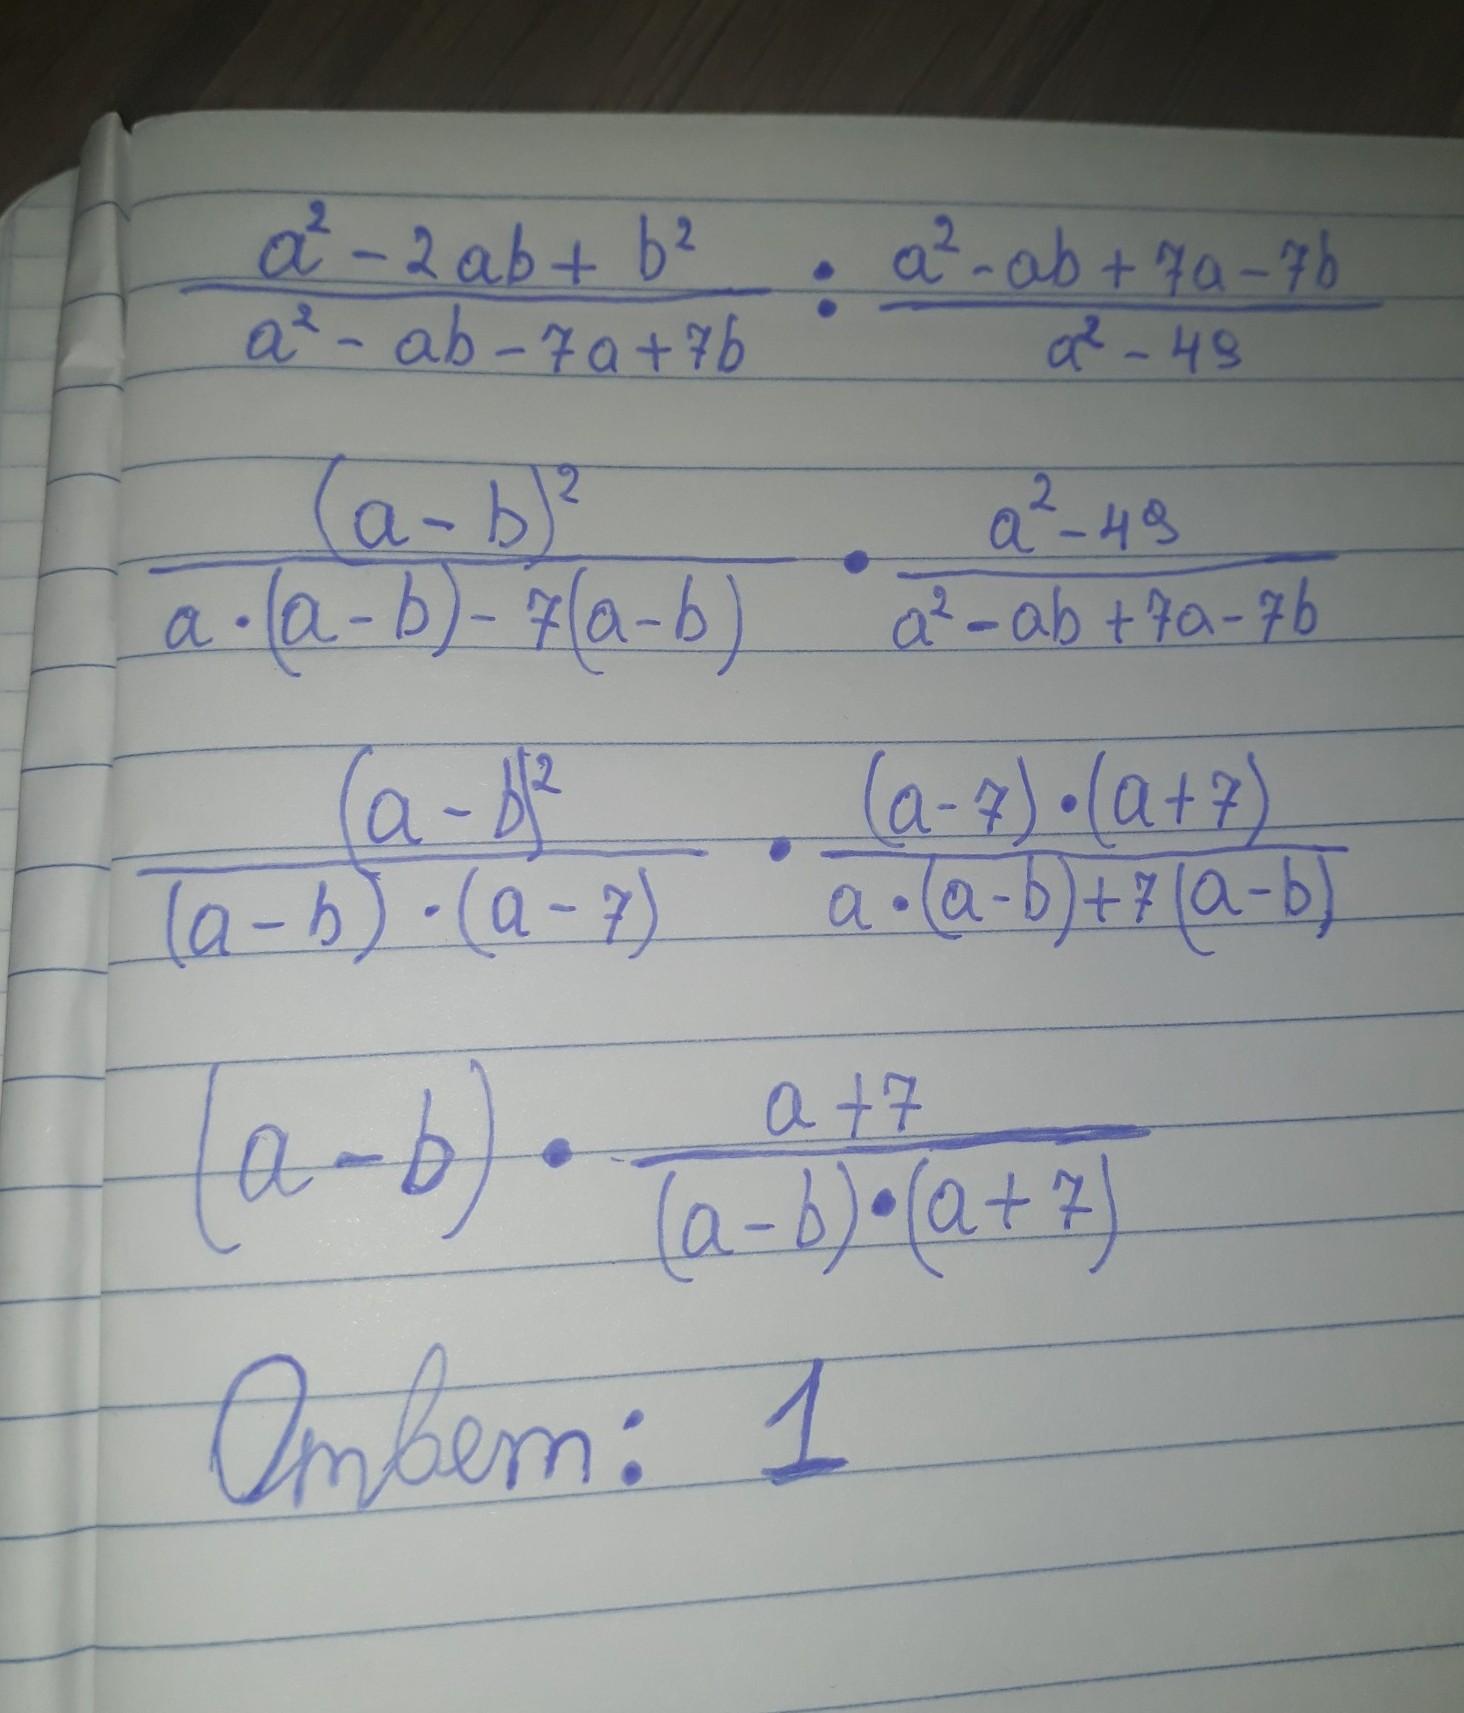 a² - 2ab + b² / a² - ab - 7a + 7b : a² - ab + 7a - 7b / a² - 49
(a - b)² / a · (a - b) - 7(a - b) · a² - 49 / a² - ab + 7a - 7b
(a - b)² / (a - b) · (a - 7) · (a - 7) · (a + 7) / a · (a - b) + 7(a - b)
(a - b) · a + 7 / (a - b) · (a + 7)
Ответ: 1